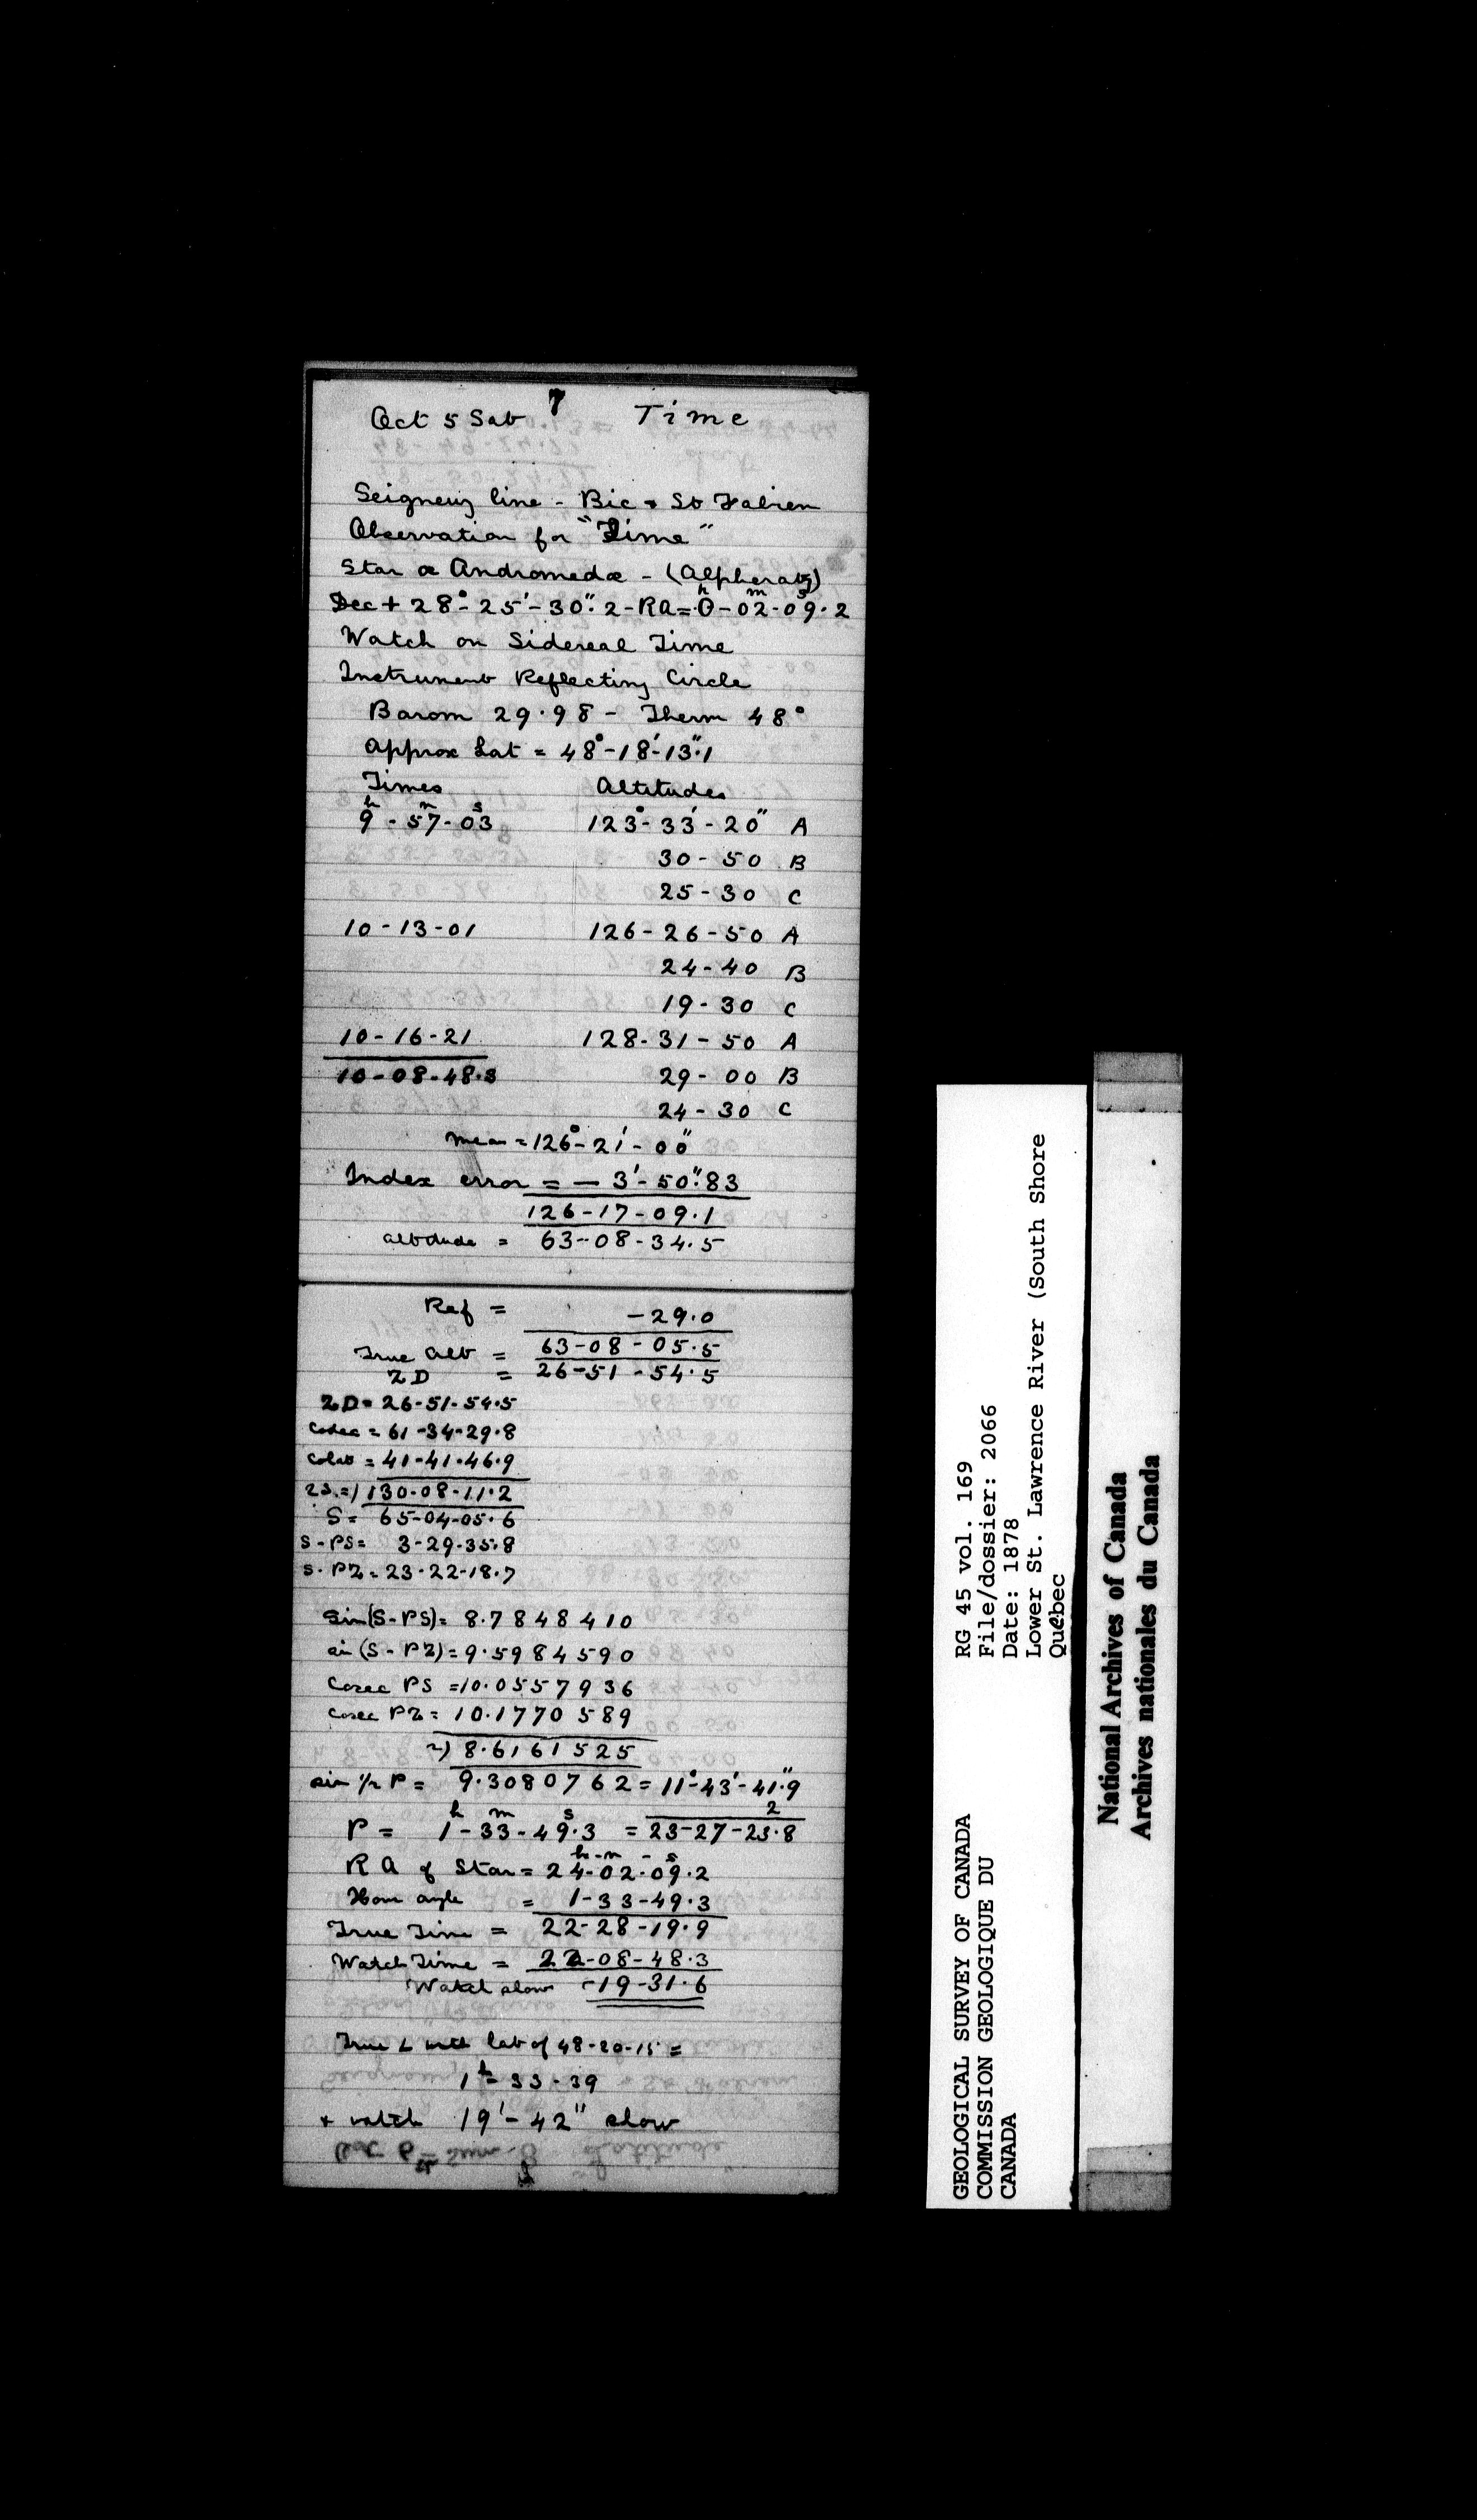 7
Oct 5 Sat Time
Seigneury line - Bic & St Fabien
Observation for "Time"
Star α Andromedæ - (Alpheratz)
Dec + 28° - 25' - 30".2 - RA = 0h - 02m - 09s.2
Watch on Sidereal Time
Instrument Reflecting Circle
Barom 29.98 - Therm 48°
Approx Lat = 48° - 18' - 13".1
Times Altitudes
9h - 57m - 03s 123° - 33' - 20" A
30 - 50 B
25 - 30 C
10 - 13 - 01 126 - 26 - 50 A
24 - 40 B
19 - 30 C
10 - 16 - 21 128 - 31 - 50 A
10 - 08 - 48.3 29 - 00 B
24 - 30 C
mean = 126° - 21' - 00"
Index error = - 3' - 50".83
126 - 17 - 09.1
altitude = 63 - 08 - 34.5
Ref = - 29.0
True Alt = 63 - 08 - 05.5
ZD = 26 - 51 - 54.5
ZD = 26 - 51 - 54.5
Codec = 61 - 34 - 29.8
Colat = 41 - 41 - 46.9
2S = ) 130 - 08 - 11.2
S = 65 - 04 - 05.6
S - PS = 3 - 29 - 35.8
S - PZ = 23 - 22 - 18.7
sin (S - PS) = 8.7848410
sin (S - PZ) = 9.5984590
Cosec PS = 10.0557936
Cosec PZ = 10.1770589
2) 8.6161525
sin ½ P = 9.3080762 = 11° - 43' - 41".9
2
P = 1h - 33m - 49s.3 = 23 - 27 - 23.8
RA of Star = 24h - 02m - 09s.2
Hour angle = 1 - 33 - 49.3
True Time = 22 - 28 - 19.9
Watch Time = 22 - 08 - 48.3
Watch slow - 19 - 31.6
True ∠ with lat of 48 - 20 - 15 =
1h - 33 - 39
& watch 19' - 42" slow
GEOLOGICAL SURVEY OF CANADA
COMMISSION GEOLOGIQUE DU
CANADA
RG 45 vol. 169
File/dossier: 2066
Date: 1878
Lower St. Lawrence River (South Shore
Québec
National Archives of Canada
Archives nationales du Canada